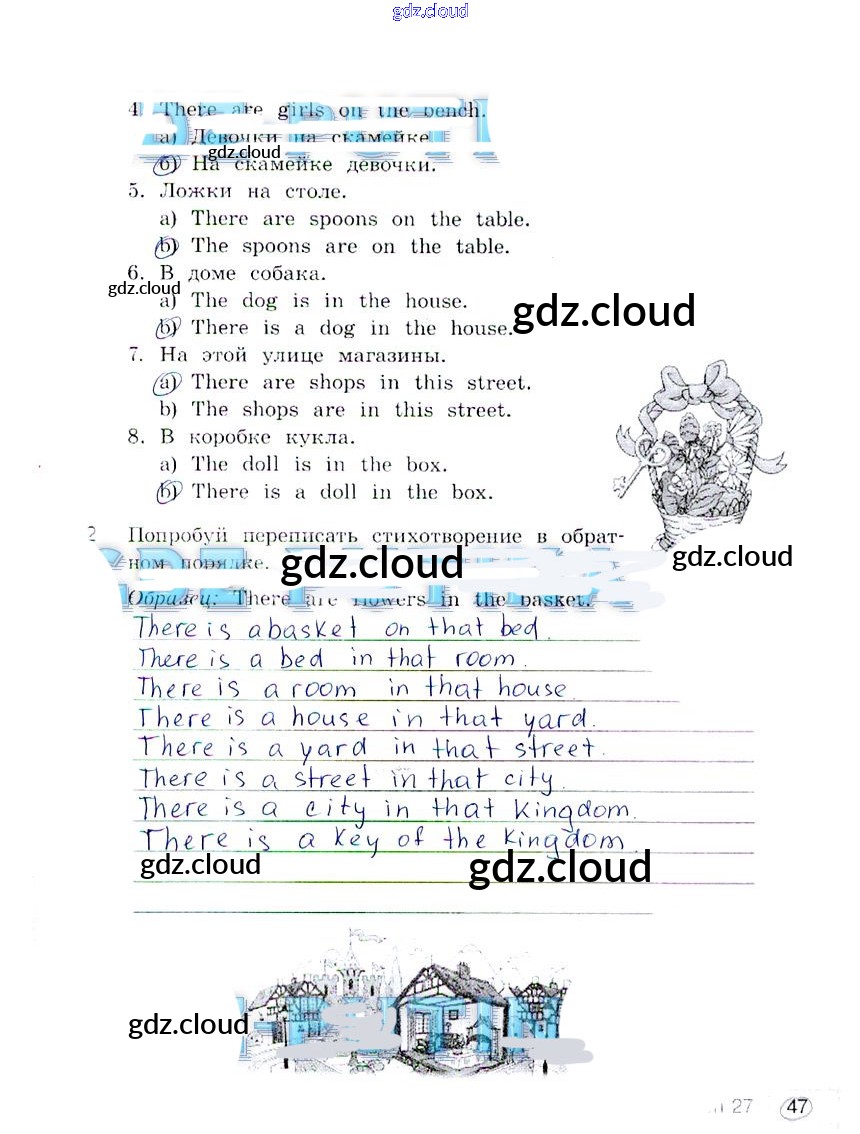 gdz.cloud
4 There are girls on the bench.
а) Девочки на скамейке
gdz.cloud
б) На скамейке девочки.
5. Ложки на столе.
a) There are spoons on the table.
b) The spoons are on the table.
6. В доме собака.
gdz.cloud
a) The dog is in the house.
gdz.cloud
b) There is a dog in the house.
7. На этой улице магазины.
a) There are shops in this street.
b) The shops are in this street.
8. В коробке кукла.
a) The doll is in the box.
b) There is a doll in the box.
2 Попробуй переписать стихотворение в обрат-
ном порядке.
gdz.cloud
gdz.cloud
Образец: There are flowers in the basket.
There is a basket on that bed.
There is a bed in that room.
There is a room in that house.
There is a house in that yard.
There is a yard in that street.
There is a street in that city.
There is a city in that Kingdom.
There is a key of the Kingdom.
gdz.cloud
gdz.cloud
gdz.cloud
27 47